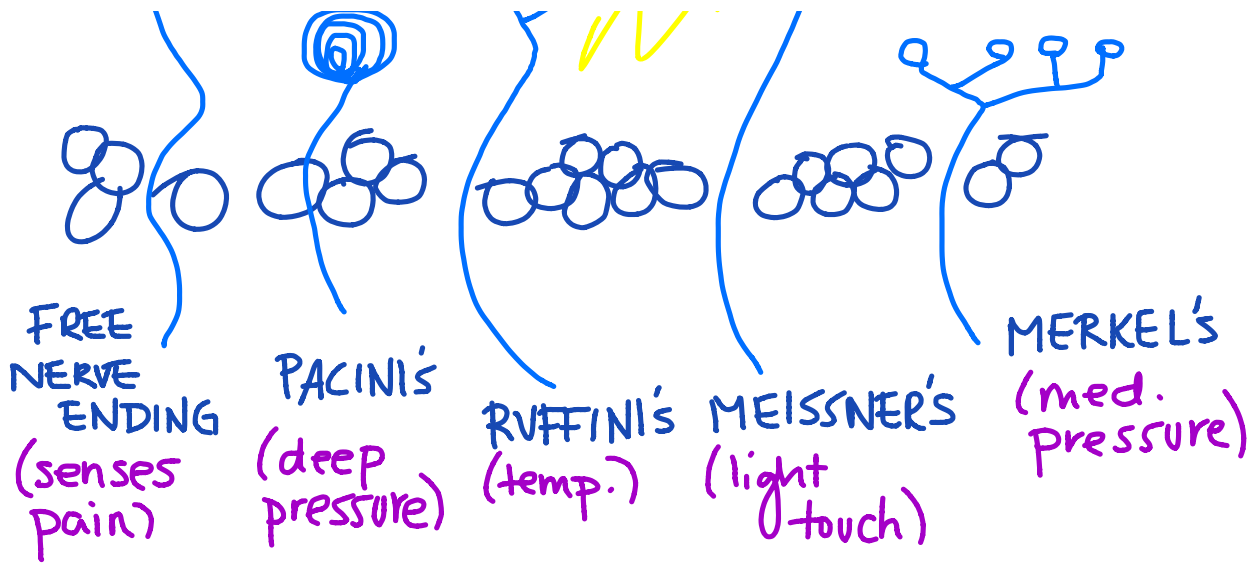 FREE
NERVE
ENDING
(senses
pain)
PACINI's
(deep
pressure)
RUFFINI's
(temp.)
MEISSNER's
(light
touch)
MERKEL's
(med.
pressure)